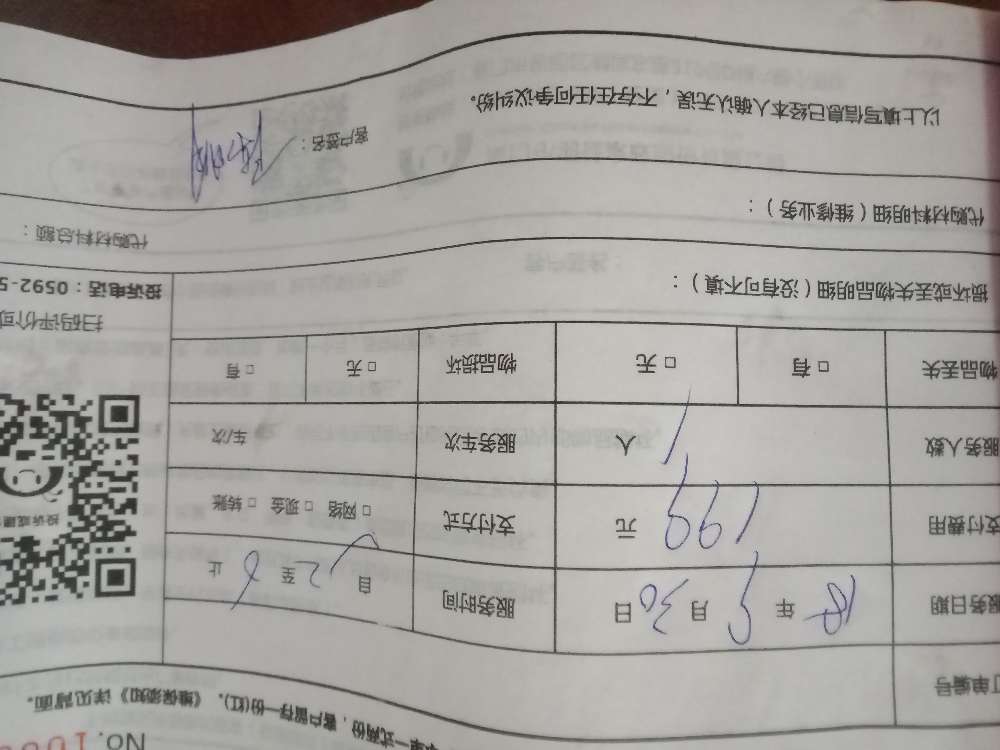 No. 100
单一式两份，客户留存一份(红)，《维保须知》详见背面。
订单编号
服务日期 18 年 月 30 日 服务时间 自 2 至 6 止
支付费用 199 元 支付方式 □ 网络 □ 现金 □ 转账
服务人数 1 人 服务车次 车次
物品丢失 □ 有 □ 无 物品损坏 □ 无 □ 有
投诉或建
扫码评价或
投诉电话：0592-5
损坏或丢失物品明细（没有可不填）：
代购材料明细（维修业务）：
代购材料总额：
以上填写信息已经本人确认无误，不存在任何争议纠纷。
客户签名：